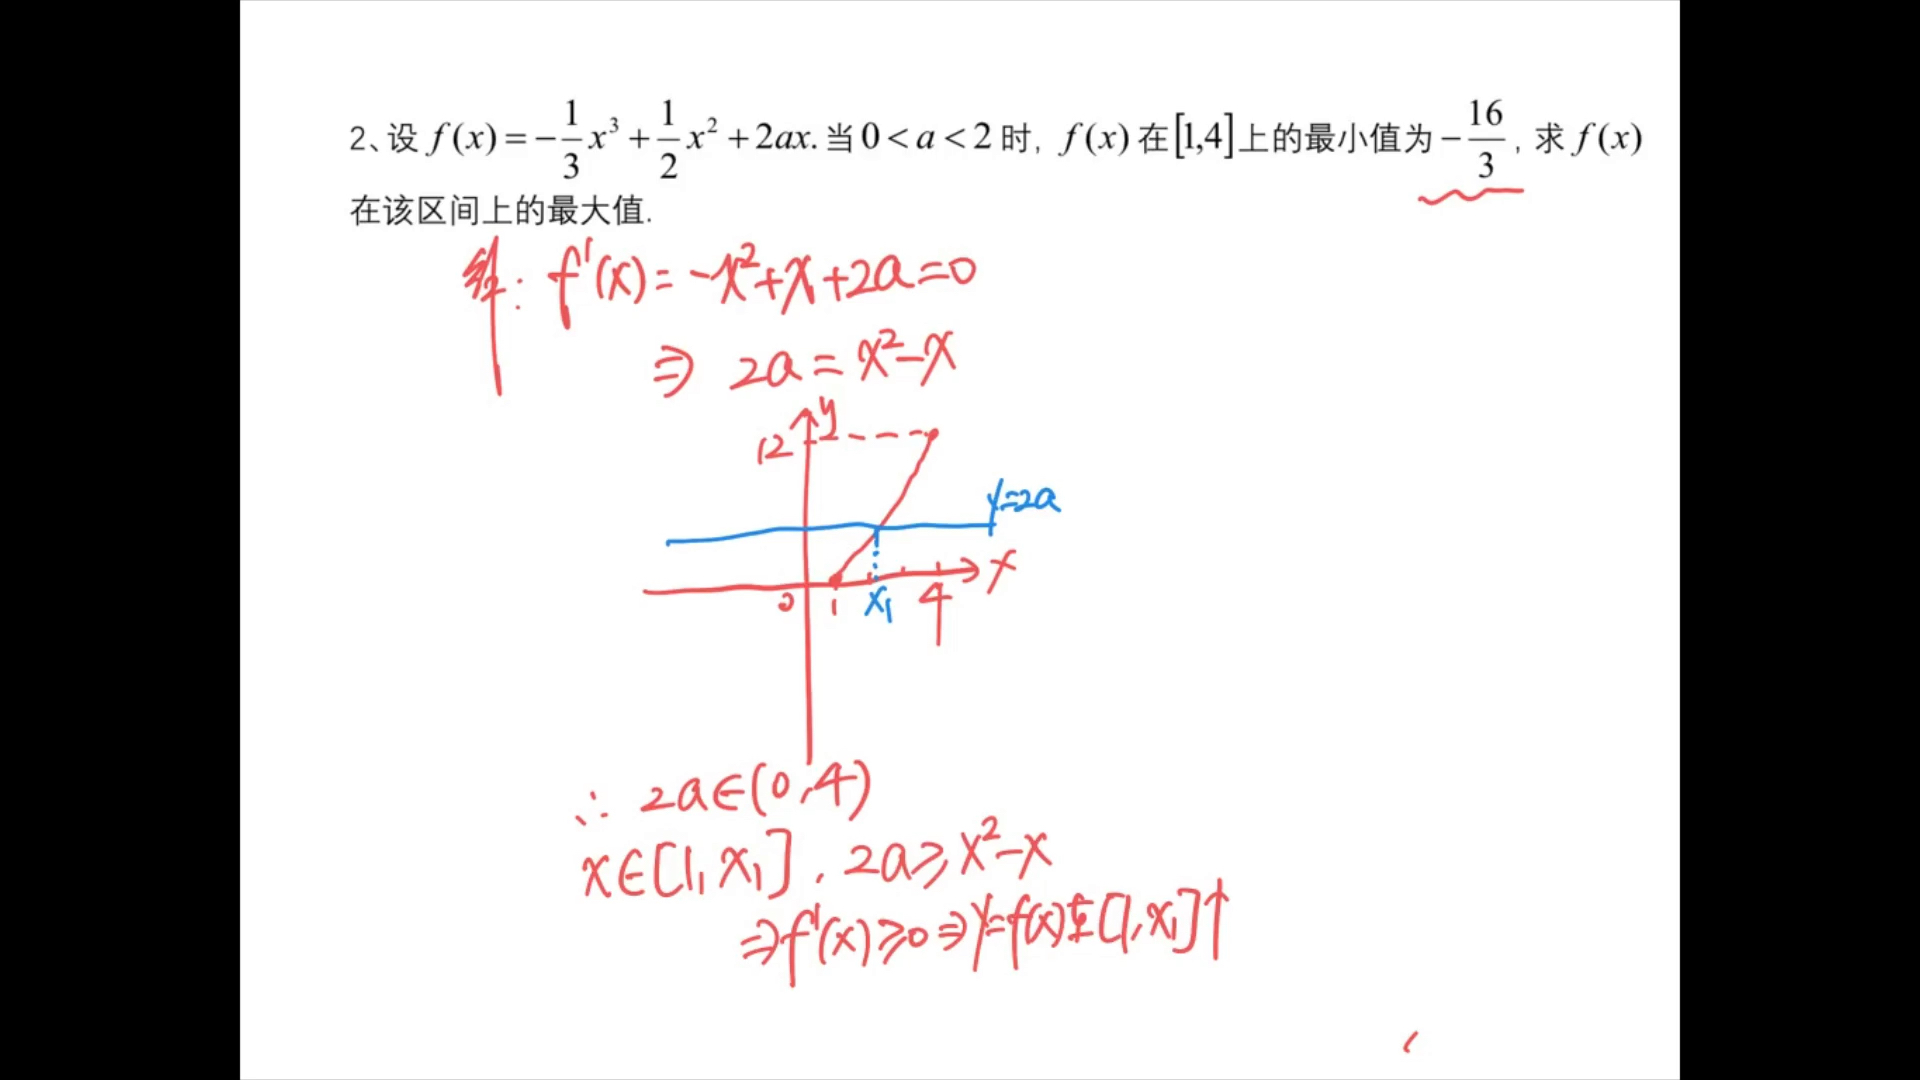 2、设 f(x) = -1/3 x³ + 1/2 x² + 2ax. 当 0 < a < 2 时, f(x) 在 [1,4] 上的最小值为 -16/3, 求 f(x)
在该区间上的最大值.
解: f'(x) = -x²+x+2a=0
⇒ 2a = x²-x
y
12
y=2a
x
0 1 x₁ 4
∴ 2a∈(0,4)
x∈[1,x₁], 2a≥x²-x
⇒f'(x)≥0⇒y=f(x)在[1,x₁]↑